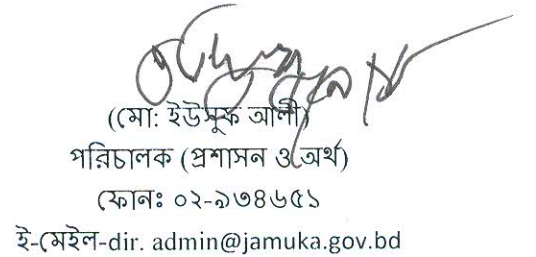 (মো: ইউসুফ আলী)
পরিচালক (প্রশাসন ও অর্থ)
ফোনঃ ০২-৯৩৪৬৫১
ই-মেইল-dir. admin@jamuka.gov.bd